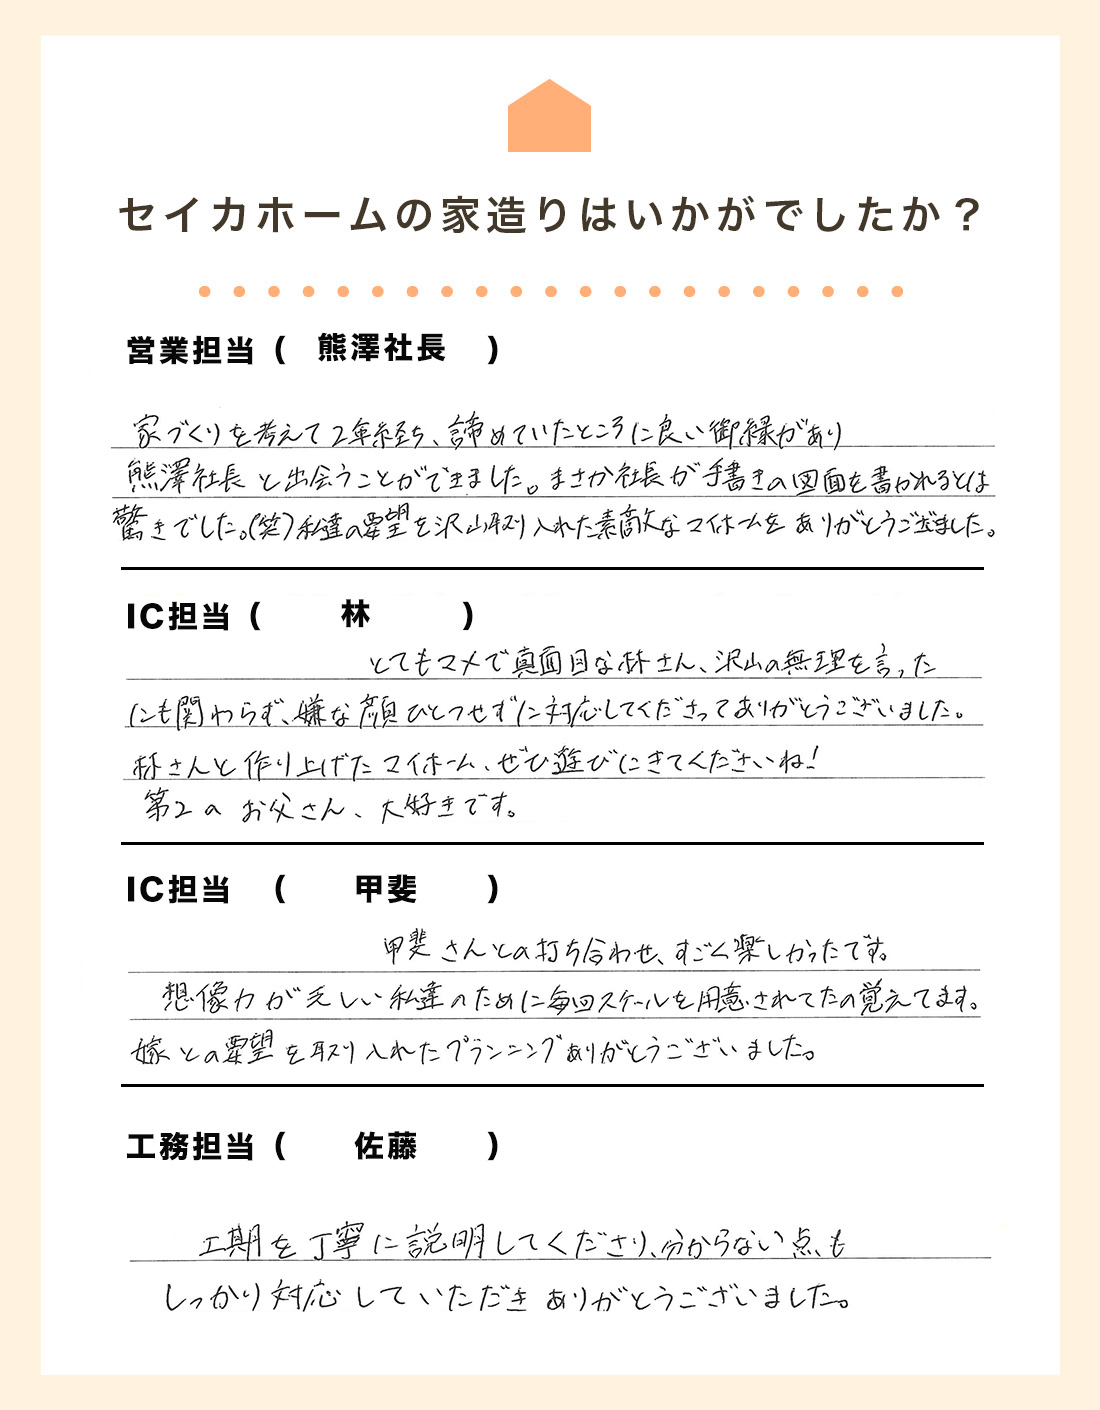 セイカホームの家造りはいかがでしたか？
営業担当（ 熊澤社長 ）
家づくりを考えて2年経ち、諦めていたところに良い御縁があり
熊澤社長と出会うことができました。まさか社長が手書きの図面を書かれるとは
驚きでした。(笑)私達の要望を沢山取り入れた素敵なマイホームをありがとうございました。
IC担当（ 林 ）
とてもマメで真面目な林さん、沢山の無理を言った
にも関わらず、嫌な顔ひとつせずに対応してくださってありがとうございました。
林さんと作り上げたマイホーム、ぜひ遊びにきてくださいね！
第2のお父さん、大好きです。
IC担当（ 甲斐 ）
甲斐さんとの打ち合わせ、すごく楽しかったです。
想像力が乏しい私達のために毎回スケールを用意されてたの覚えてます。
嫁との要望を取り入れたプランニングありがとうございました。
工務担当（ 佐藤 ）
工期を丁寧に説明してくださり、分からない点も
しっかり対応していただきありがとうございました。